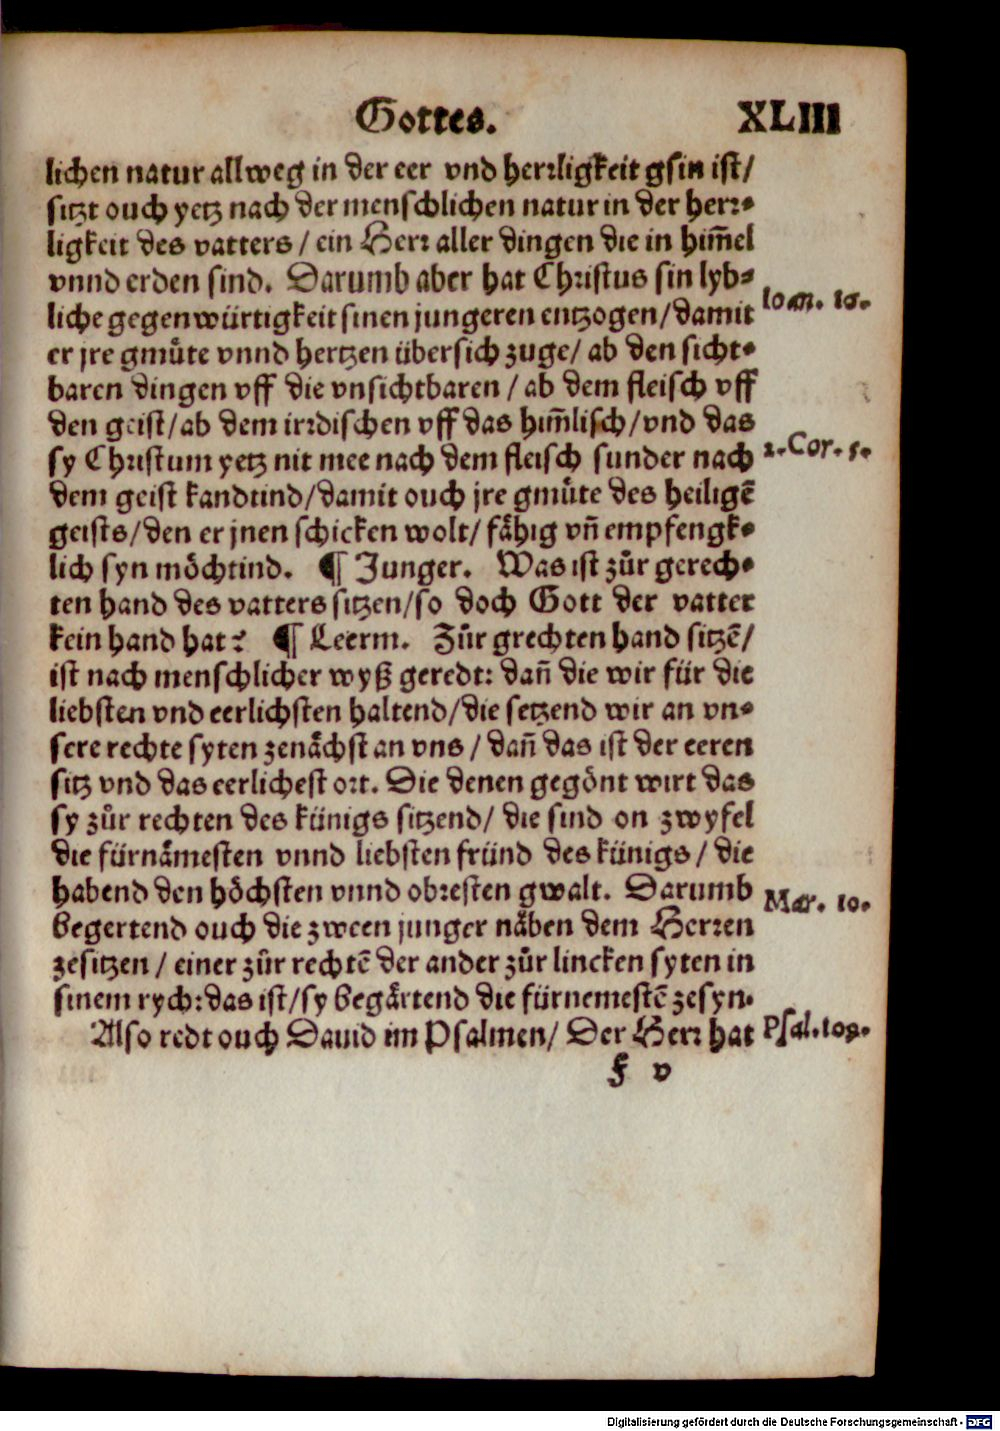 Gottes. XLIII
lichen natur allweg in der eer vnd herrligkeit gsin ist/
sitzt ouch yetz nach der menschlichen natur in der herr-
ligkeit des vatters / ein Herr aller dingen die in him̃el
vnnd erden sind. Darumb aber hat Christus sin lyb-
liche gegenwürtigkeit sinen jungeren entzogen/damit
Ioan. 16.
er jre gmuͤte vnnd hertzen übersich zuge/ ab den sicht-
baren dingen vff die vnsichtbaren / ab dem fleisch vff
den geist/ab dem irrdischen vff das him̃lisch/vnd das
sy Christum yetz nit mee nach dem fleisch sunder nach
2. Cor. 5.
dem geist kandtind/damit ouch jre gmuͤte des heiligẽ
geists/den er jnen schicken wolt/ faͤhig vñ empfengk-
lich syn moͤchtind. ¶ Junger. Was ist zuͦr gerech-
ten hand des vatters sitzen/so doch Gott der vatter
kein hand hat? ¶ Leerm. Zuͦr grechten hand sitzẽ/
ist nach menschlicher wyß geredt: dañ die wir für die
liebsten vnd eerlichsten haltend/die setzend wir an vn-
sere rechte syten zenaͤchst an vns / dañ das ist der eeren
sitz vnd das eerlichest ort. Die denen gegoͤnt wirt das
sy zuͦr rechten des künigs sitzend/ die sind on zwyfel
die fürnaͤmesten vnnd liebsten fründ des künigs / die
habend den hoͤchsten vnnd obresten gwalt. Darumb
Mar. 10.
begertend ouch die zween junger naͤben dem Herren
zesitzen / einer zuͦr rechtẽ der ander zuͦr lincken syten in
sinem rych: das ist/sy begaͤrtend die fürnemestẽ zesyn.
Also redt ouch Dauid im Psalmen/ Der Herr hat
Psal. 109.
F v
Digitalisierung gefördert durch die Deutsche Forschungsgemeinschaft - DFG